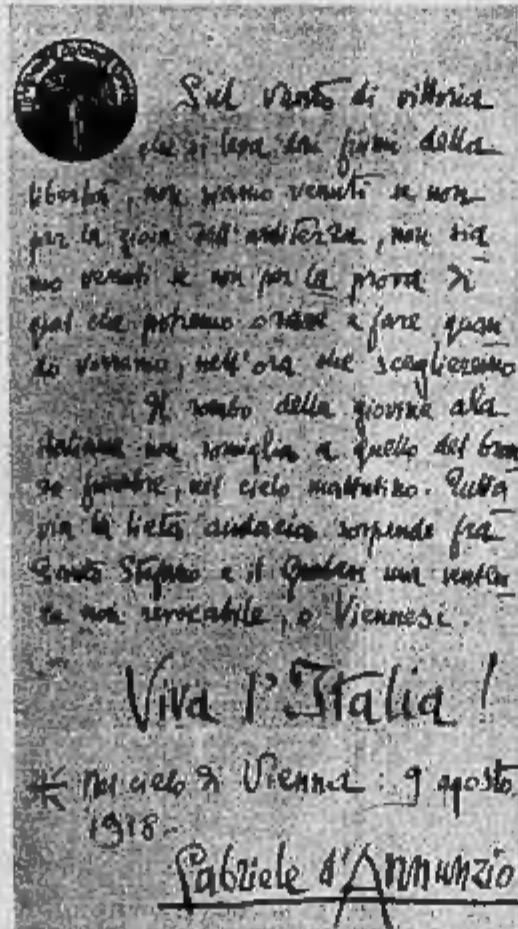 Sul vento di vittoria
che si leva dai fiumi della
libertà, non siamo venuti se non
per la gioia dell'arditezza, non sia
mo venuti se non per la prova di
quel che potremo osare e fare quan
do vorremo, nell'ora che sceglieremo
Il rombo della giovine ala
italiana non somiglia a quello del bron
zo funebre, nel cielo mattutino. Tutta
via la lieta audacia sospende fra
Santo Stefano e il Graben una senten
za non revocabile, o Viennesi.
Viva l'Italia!
Nel cielo di Vienna: 9 agosto
1918-
Gabriele d'Annunzio